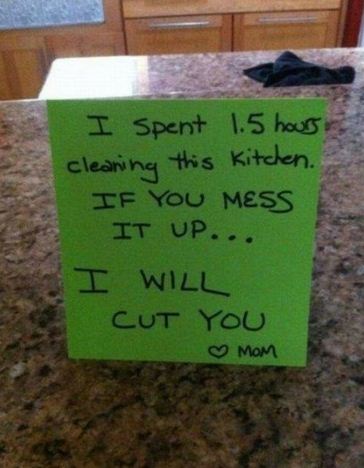 I spent 1.5 hours
cleaning this kitchen.
IF YOU MESS
IT UP...
I WILL
CUT YOU
♡ MOM